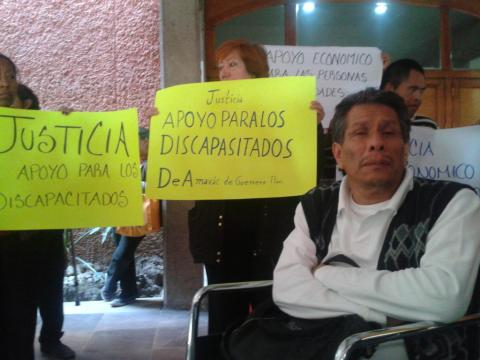 JUSTICIA
APOYO PARA LOS
DISCAPACITADOS
Justicia
APOYO PARA LOS
DISCAPASITADOS
De Amaxac de Guerrero Tlax.
APOYO ECONOMICO
PARA LAS PERSONAS
ECONOMICO